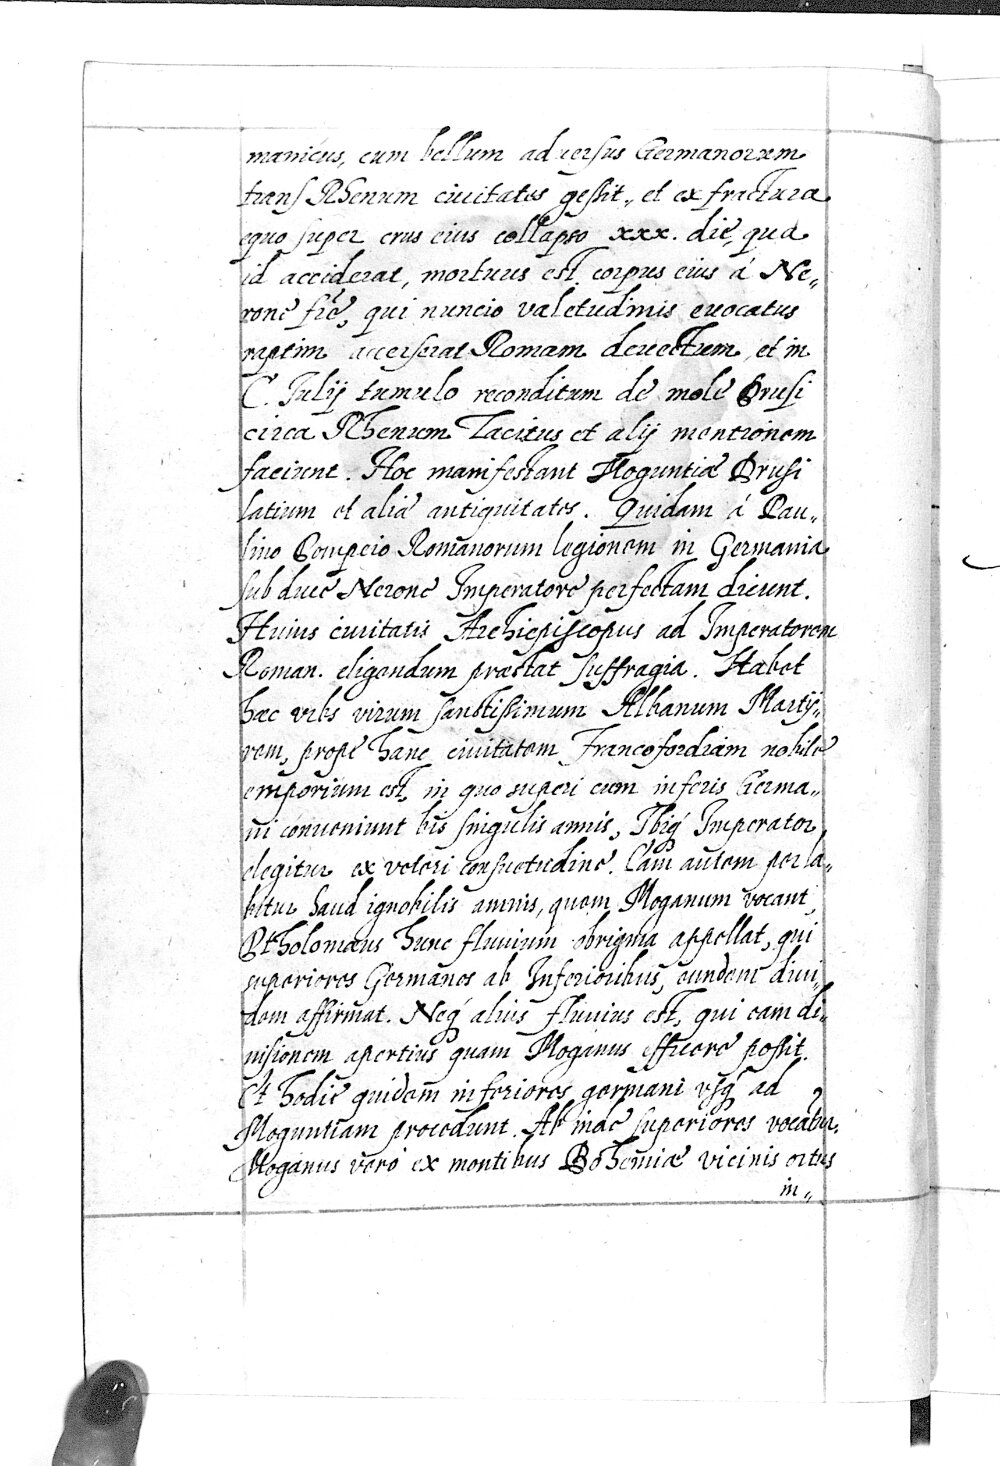 manicus, cum bellum adversus Germanorum
trans Rhenum ciuitates gessit, et ex fractura
equo super crus eius collapso xxx. die, qua
id acciderat, mortuus est, corpus eius á Ne„
rone fr̃e, qui nuncio valetudinis euocatus
raptim accerserat Romam deuectum, et in
C. Iulij tumulo reconditum de mole Drusi
circa Rhenum Tacitus et alij mentionem
faciunt. Hoc manifestant Moguntiæ Drusi
latium et aliæ antiquitates. Quidam á Pau„
lino Pompeio Romanorum legionem in Germania
sub duce Nerone Imperatore perfectam dicunt.
Huius ciuitatis Archiepiscopus ad Imperatorem
Roman. eligendum præstat suffragia. Habet
hæc vrbs virum sanctissimum Albanum Marty„
rem, prope hanc ciuitatem Francofordiam nobile
emporium est, in quo superi cum inferis Germa„
ni conueniunt bis singulis annis, Ibiq́ Imperator
elegitur ex veteri consuetudine. Cam autem perla„
bitur haud ignobilis amnis, quem Moganum vocant,
Ptholomæus hunc fluuium obrigma appellat, qui
superiores Germanos ab Inferioribus, eundem diui„
dem affirmat. Neq́ alius fluuius est, qui eam di„
uisionem apertius quam Moganus efficere possit.
Et hodie quidem inferiores germani vsq́ ad
Moguntiam procedunt. Ab inde superiores vocãtur.
Moganus veró ex montibus Bohemiæ vicinis ortus
in„